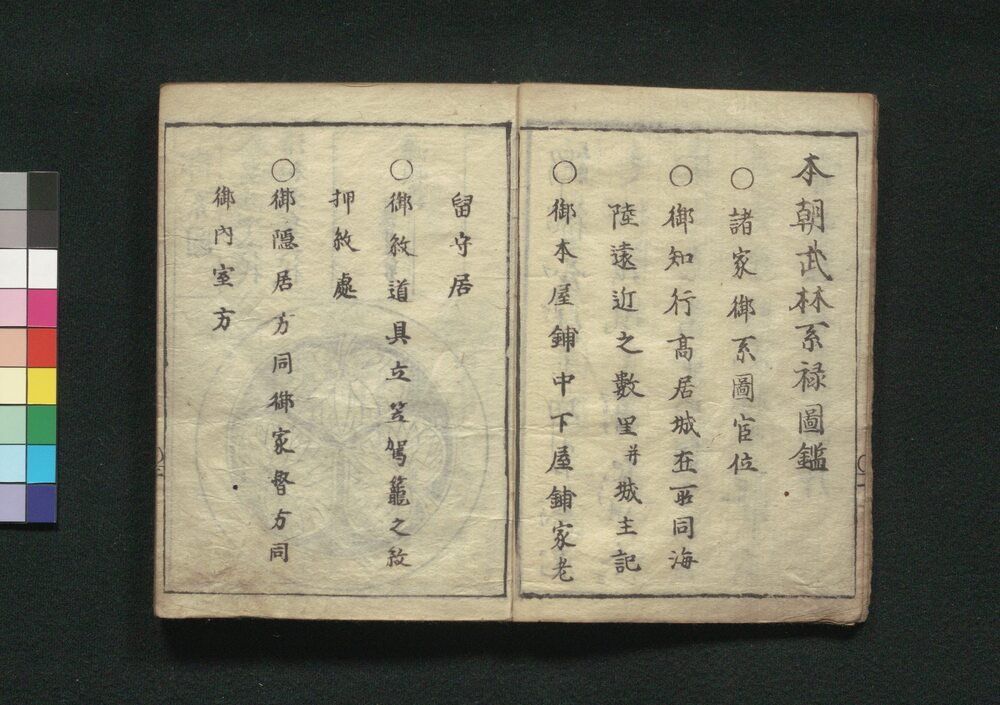 本朝武林系禄圖鑑
○諸家御系圖官位
○御知行髙居城在所同海
陸遠近之數里并城主記
○御本屋鋪中下屋鋪家老
留守居
○御紋道具立笠駕籠之紋
押紋處
○御隠居方同御家督方同
御内室方